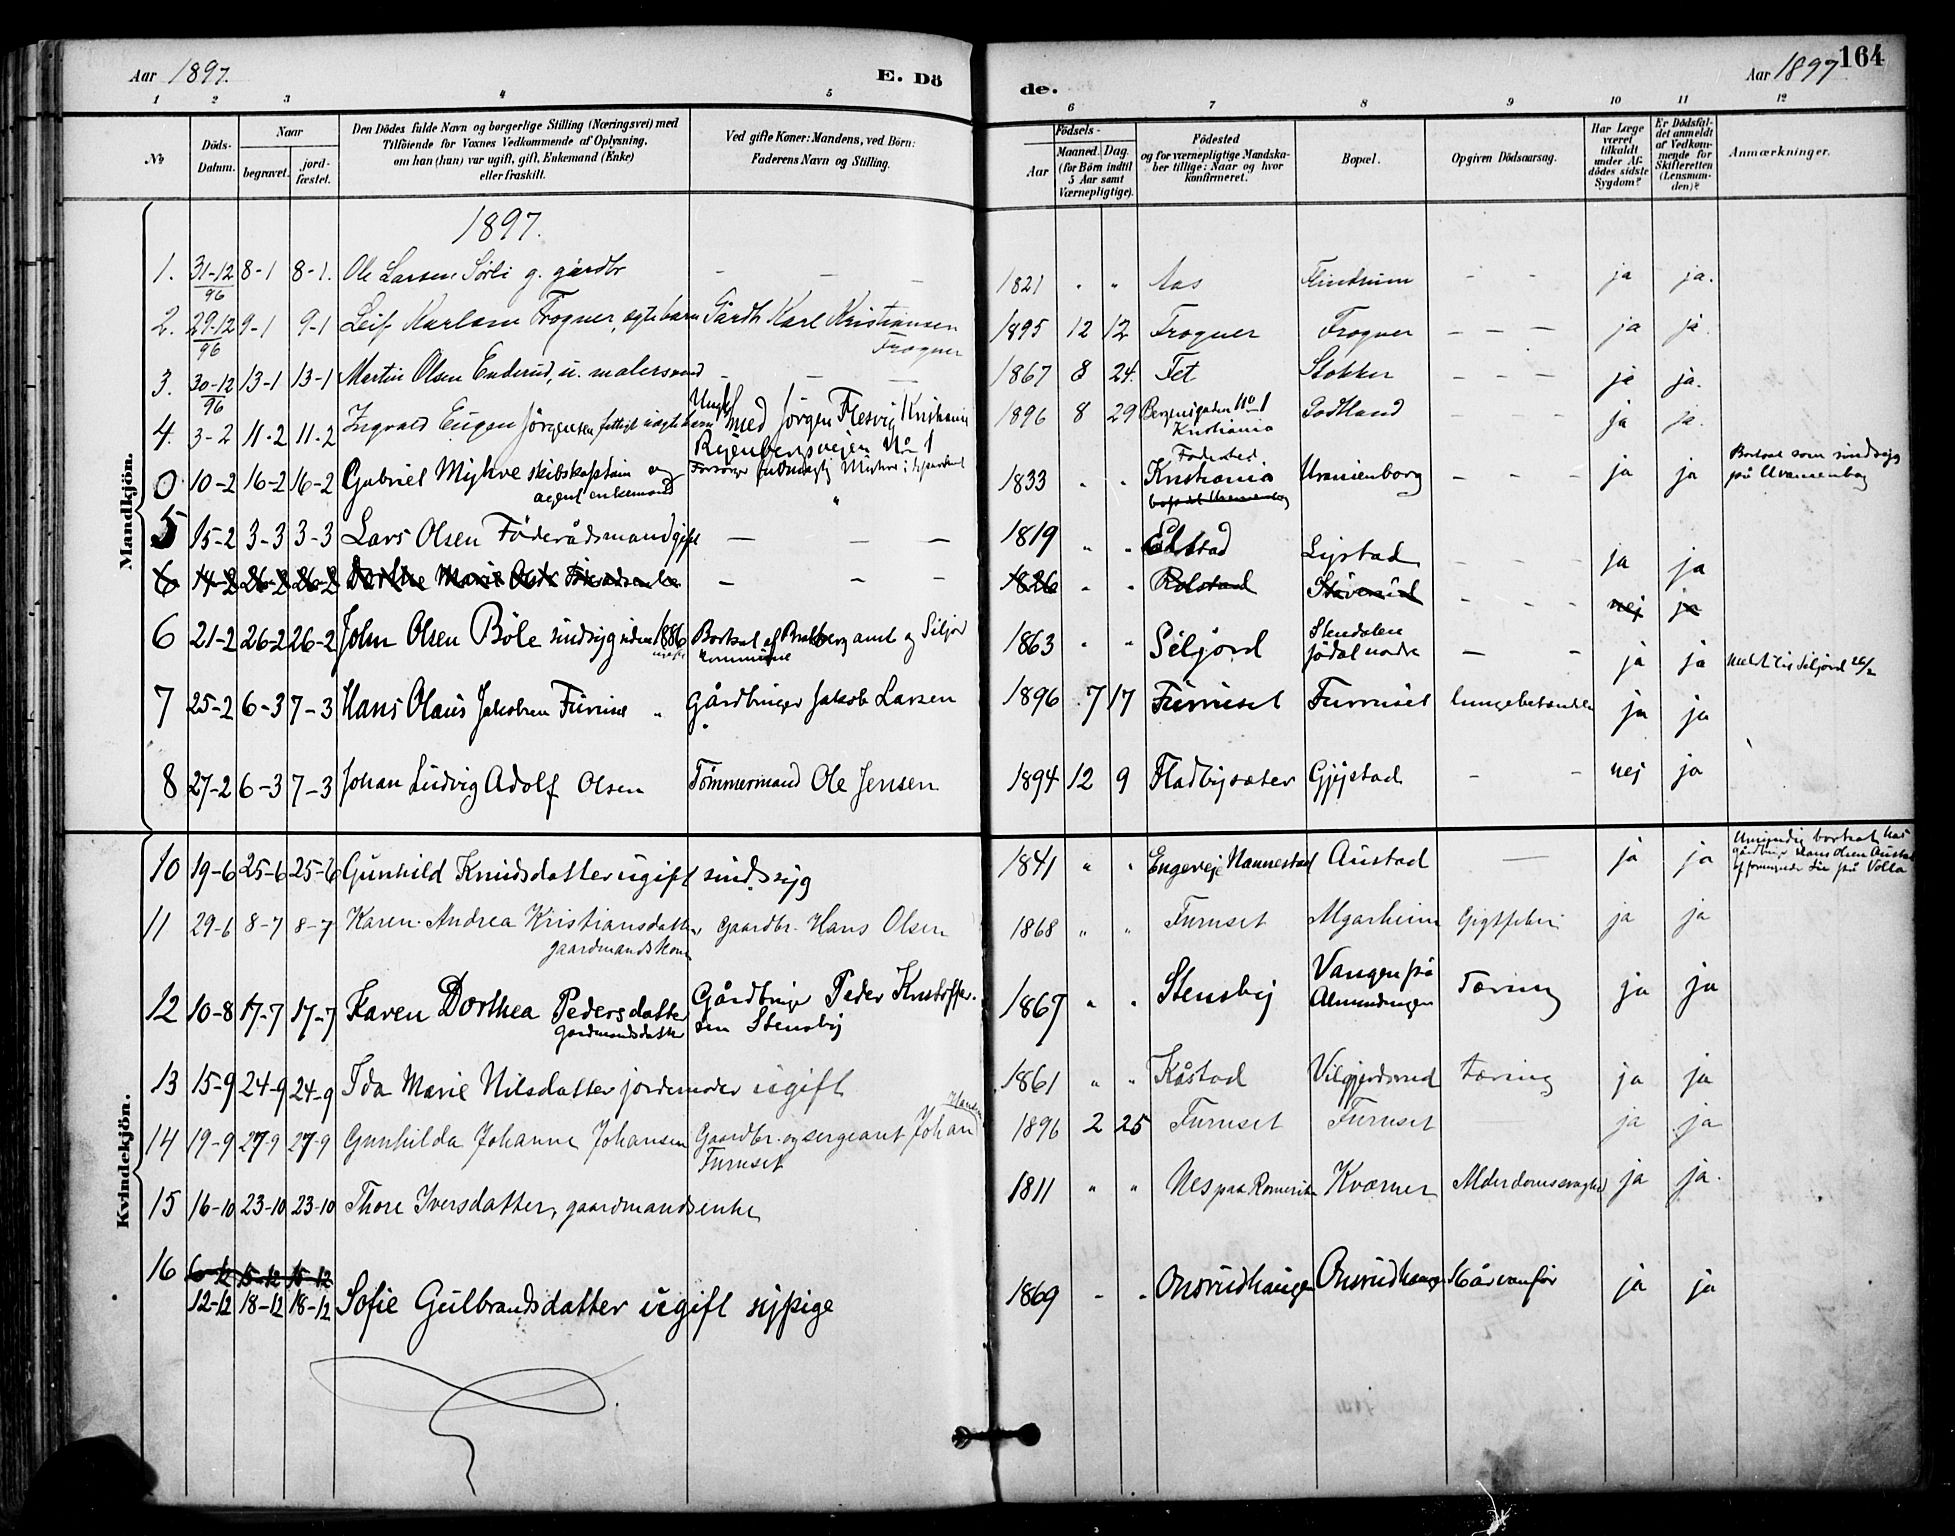 Aar 1897. E. Dö de. Aar 1897 164
1 2 3 4 5 6 7 8 9 10 11 12
No
Döds-Datum.
Naar
begravet.
jord-fæstet.
Den Dödes fulde Navn og borgerlige Stilling (Næringsvei) med
Tilföiende for Voxnes Vedkommende af Oplysning,
om han (hun) var ugift, gift, Enkemand (Enke)
eller fraskilt.
Ved gifte Koner: Mandens, ved Börn:
Faderens Navn og Stilling.
Födsels-
Aar
Maaned. Dag.
(for Börn indtil
5 Aar samt
Værnepligtige).
Födested
og for værnepligtige Mandska-
ber tillige: Naar og hvor
konfirmeret.
Bopæl.
Opgiven Dödsaarsag.
Har Læge
været
tilkaldt
under Af-
dödes sidste
Sygdom?
Er Dödsfal-
det anmeldt
af Vedkom-
mende for
Skifteretten
(Lensman-
den)?
Anmærkninger.
Mandkjön.
1897.
1. 31-12 96 8-1 8-1. Ole Larsen Sörli g. gårdbr - - - 1821 " " Aas - - - ja ja.
2. 29-12 96 9-1 9-1 Leif Karlsen Frogner, ægte barn Gårdb. Karl Kristiansen Frogner 1895 12 12 Frogner Frogner - - - ja ja.
3. 30-12 96 13-1 13-1 Martin Olsen Enderud, u. malersvend - - - 1867 8 24. Fet Stokker - - - ja ja.
4. 3-2 11-2 11-2 Ingvald Eugen Jörgensen Ungk. Smed Jörgen Flesvig Kristiania
No 1 1896 8 29 Bergensgaden No 1
Kristiania - - - ja ja.
0 10-2 16-2 16-2 Gabriel Myhre skibskaptain og
agent enkemand " 1833 " " Födested.
Kristiania Uranienborg - - - ja ja Bortsat som sindssyg
på Uranienborg
5 15-2 3-3 3-3 Lars Olsen Föderådsmand gift - - - 1819 " " Lystad - - - ja ja
6 14-2 26-2 26-2 Dorthe Marie - - - 1826 " " Rolstad - - - nej ja
6 21-2 26-2 26-2 John Olsen Böle sindssyg siden 1886
Bortsat af Bratsberg amt og Siljord
kommune 1863 " " Seljord Stendalen
- - ja ja meldt til Siljord 26/2
7 25-2 6-3 7-3 Hans Olaus Jakobsen Furuset " Gårdbruger Jakob Larsen 1896 7 17 Furuset Furuset lungebetændelse ja ja
8 27-2 6-3 7-3 Johan Ludvig Adolf Olsen Tömmermand Ole Jensen 1894 12 9 Fladbysæter Gjystad - - nej ja
Kvindekjön.
10 19-6 25-6 25-6 Gunhild Knudsdatter ugift sindssyg 1841 " " Nannestad Austad — ja ja bortsat hos
gårdbr. Hans Olsen Austad
11 29-6 8-7 8-7 Karen Andrea Kristiansdatter
gaardmandskone Gaardbr. Hans Olsen 1868 " " Furuset Algarheim Gigtfeber ja ja
12 10-8 17-7 17-7 Karen Dorthea Pedersdatter
gårdmandsdatter Gårdbruger Peder Kristoffer-
sen Stensby 1867 " " Stensby Vangen på
Almindingen Tæring ja ja
13 15-9 24-9 24-9 Ida Marie Nilsdatter jordemoder ugift 1861 " " Kåstad Tæring ja ja
14 19-9 27-9 27-9 Gunhilda Johanne Johansen Gaardbr. og sergeant Johan Hansen
Furuset 1896 2 25 Furuset Furuset ja ja
15 16-10 23-10 23-10 Thore Iversdatter, gaardmandsenke 1811 " " Nes paa Romerike Kværner Alderdomssvaghed ja ja.
16 6-12 15-12 15-12
12-12 18-12 18-12 Sofie Gulbrandsdatter ugift sypige 1869 " " Onsrudhaugen Onsrudhaugen ja ja